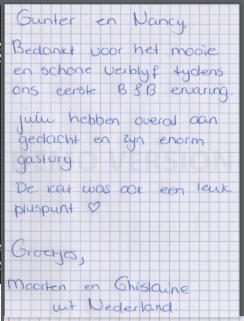 Gunter en Nancy,
Bedankt voor het mooie
en schone verblyf tydens
ons eerste B&B ervaring.
jullie hebben overal aan
gedacht en zyn enorm
gastvry
De kat was ook een leuk
pluspunt ♡
Groetjes,
Maarten en Ghislaine
uit Nederland.